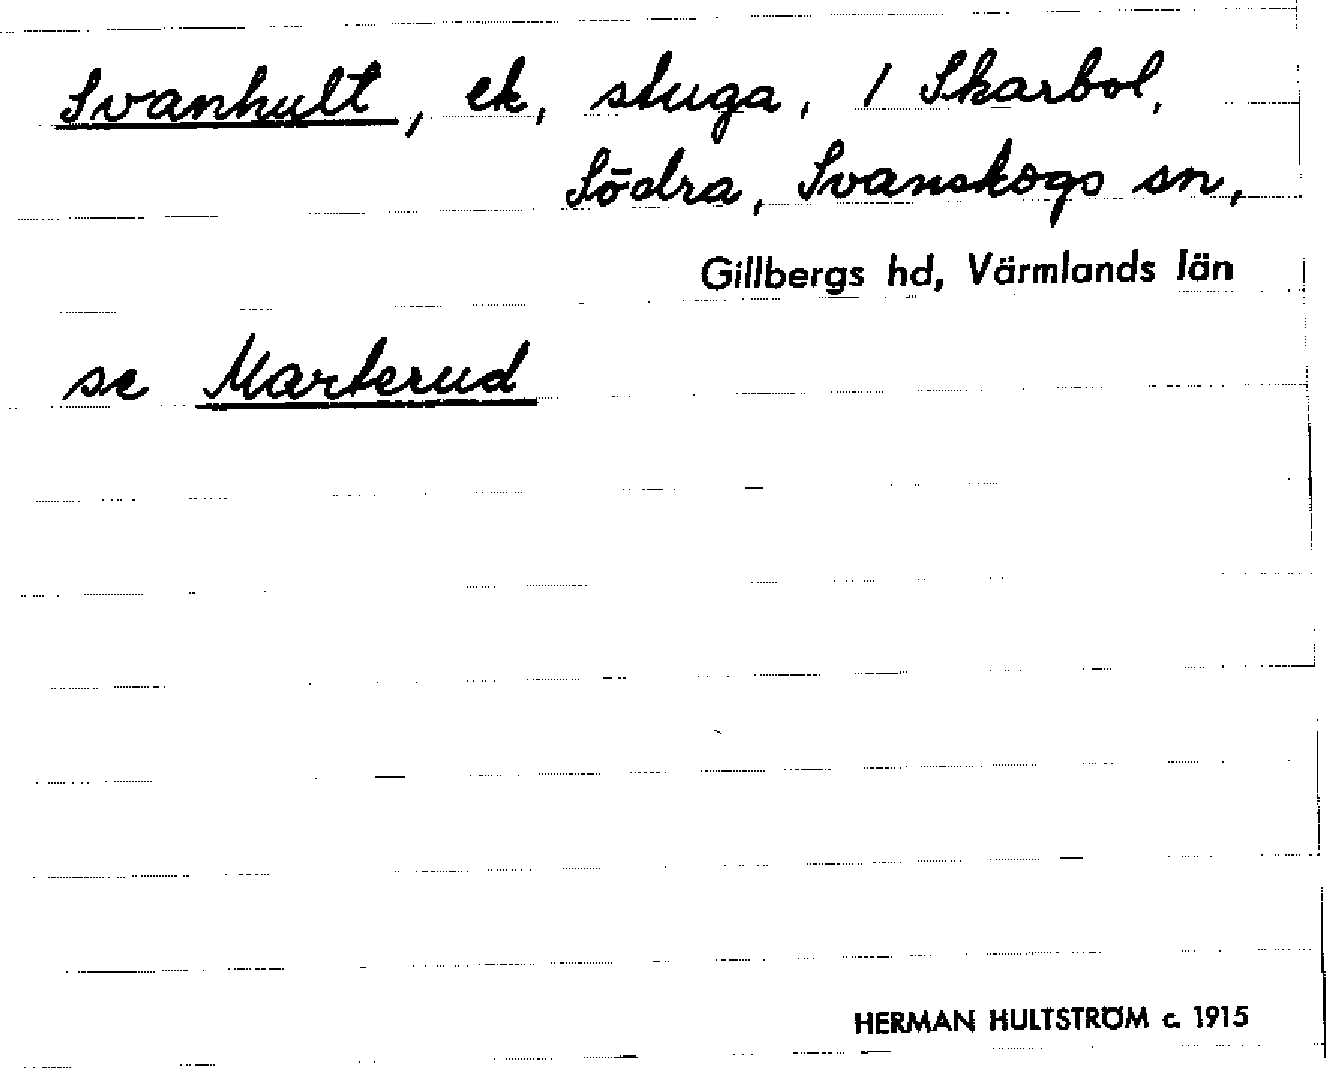 Svanhult, ek, stuga, / Skarbol,
Södra, Svanskogs sn,
Gillbergs hd, Värmlands län
se Marterud
HERMAN HULTSTRÖM c. 1915